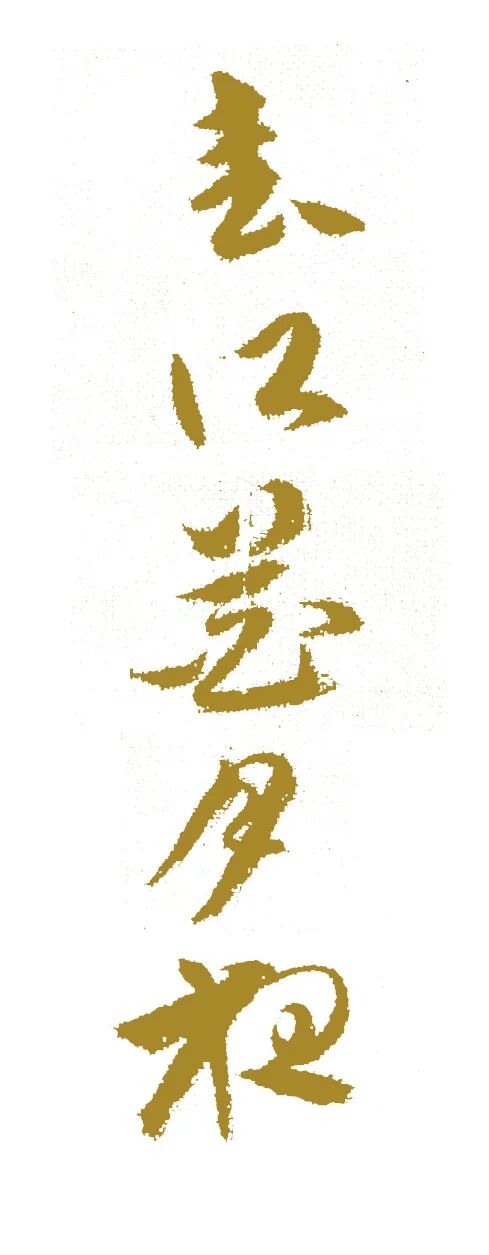 春江花月夜